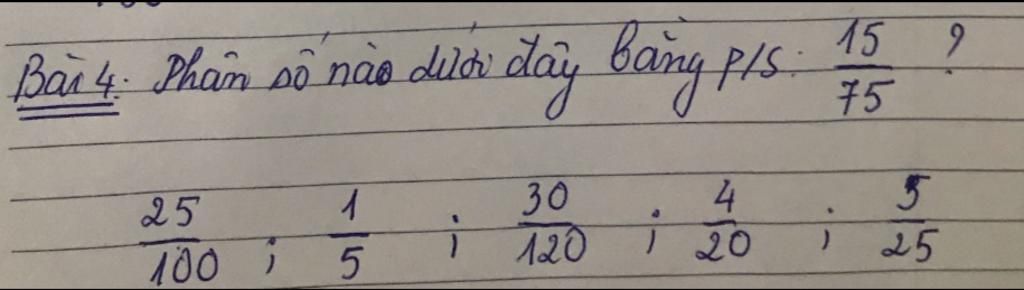 Bài 4: Phân số nào dưới đây bằng p/s: 15/75 ?
25/100 ; 1/5 ; 30/120 ; 4/20 ; 5/25